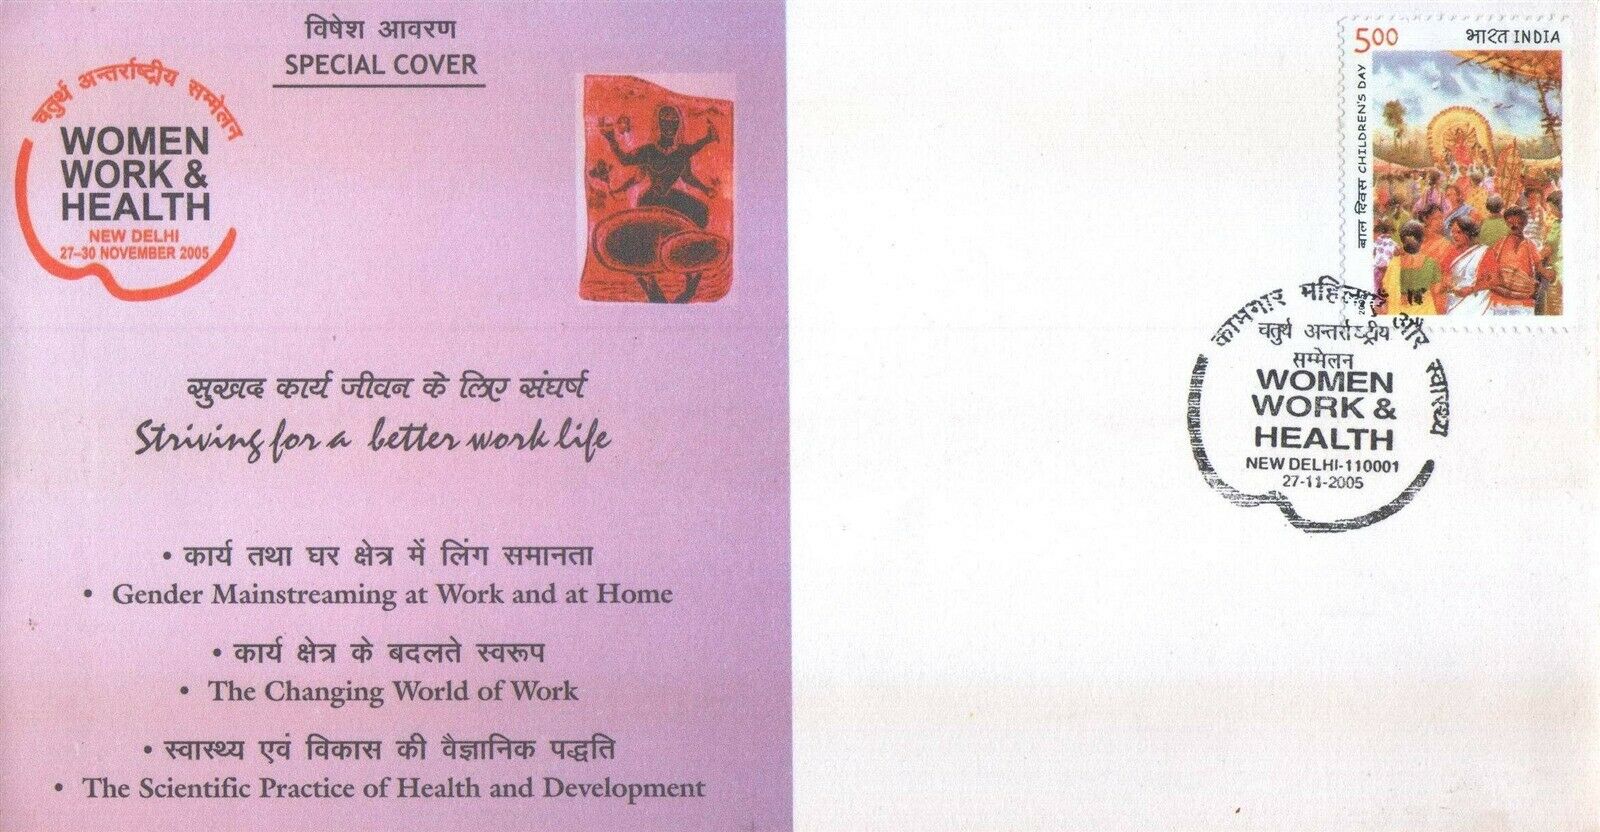 विषेश आवरण
SPECIAL COVER
चतुर्थ अन्तर्राष्ट्रीय सम्मेलन
WOMEN
WORK &
HEALTH
NEW DELHI
27–30 NOVEMBER 2005
सुखद कार्य जीवन के लिए संघर्ष
Striving for a better work life
• कार्य तथा घर क्षेत्र में लिंग समानता
• Gender Mainstreaming at Work and at Home
• कार्य क्षेत्र के बदलते स्वरूप
• The Changing World of Work
• स्वास्थ्य एवं विकास की वैज्ञानिक पद्धति
• The Scientific Practice of Health and Development
5.00 भारत INDIA
बाल दिवस CHILDREN'S DAY
कामगार महिलाएं और स्वास्थ्य
चतुर्थ अन्तर्राष्ट्रीय
सम्मेलन
WOMEN
WORK &
HEALTH
NEW DELHI-110001
27-11-2005